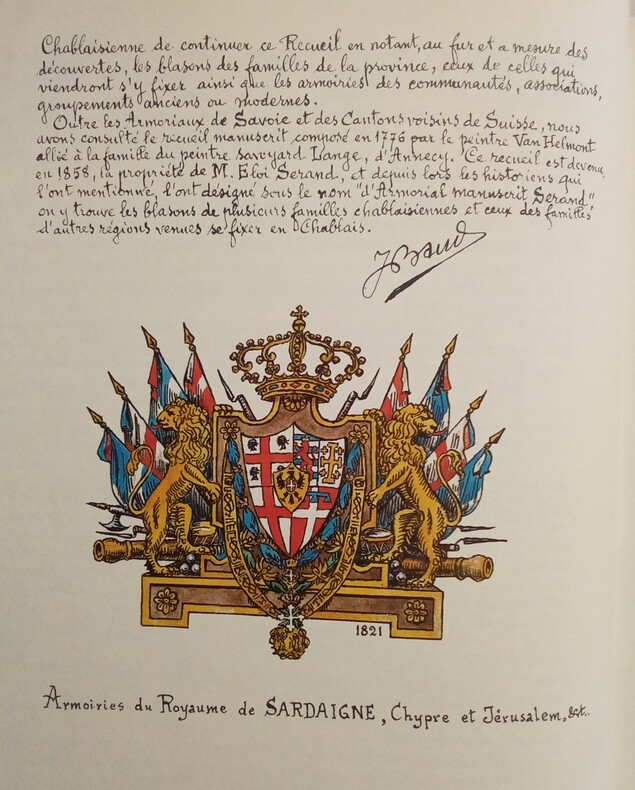 Chablaisienne de continuer ce Recueil en notant, au fur et a mesure des
découvertes, les blasons des familles de la province, ceux de celles qui
viendront s'y fixer ainsi que les armoiries des communautés, associations,
groupements anciens ou modernes.
Outre les Armoriaux de Savoie et des Cantons voisins de Suisse, nous
avons consulté le recueil manuscrit composé en 1776 par le peintre Van Helmont
allié à la famille du peintre savoyard Lange, d'Annecy. Ce recueil est devenu,
en 1858, la propriété de M. Eloi Serand, et depuis lors les historiens qui
l'ont mentionné, l'ont désigné sous le nom "d'Armorial manuscrit Serand"
on y trouve les blasons de plusieurs familles chablaisiennes et ceux des familles
d'autres régions venues se fixer en Chablais.
JBaud
1821
Armoiries du Royaume de SARDAIGNE, Chypre et Jérusalem, &ct.